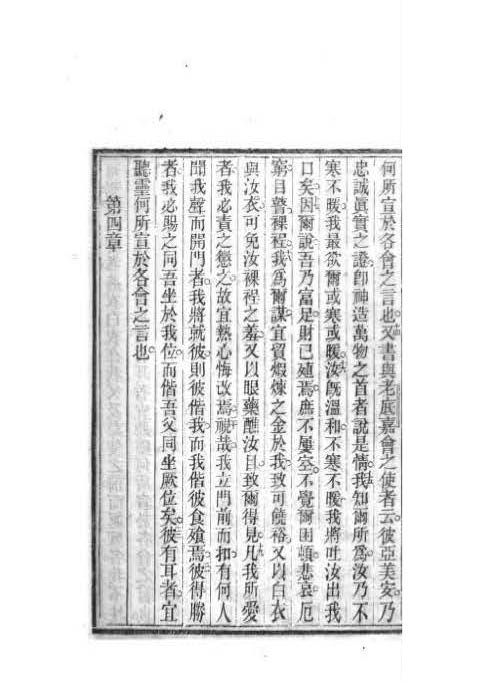 何所宣於各會之言也。又書與老底嘉會之使者云。彼亞美安。乃
忠誠眞實之證。卽神造萬物之首者說是情。我知爾所爲。汝乃不
寒不暖。我最欲爾或寒或暖。汝旣溫和。不寒不暖。我將吐汝出我
口矣。因爾說吾乃富足。財已
焉。庶不屢空。不覺爾困頓悲哀。厄
窮目瞽裸程。我爲爾謀。宜貿煆煉之金於我。致可饒裕。又以白衣
與汝衣。可免汝裸程之羞。又以眼藥醮汝目。致爾得見。凡我所愛
者。我必責之懲之。故宜熱心悔改焉。
哉。我立門前而扣。有何人
聞我聲而開門者。我將就彼。則彼偕我。而我偕彼食飱焉。彼得勝
者。我必賜之同吾坐於我位。而偕吾父同坐厥位矣。彼有耳者宜
聽靈何所宣於各會之言也。
第四章